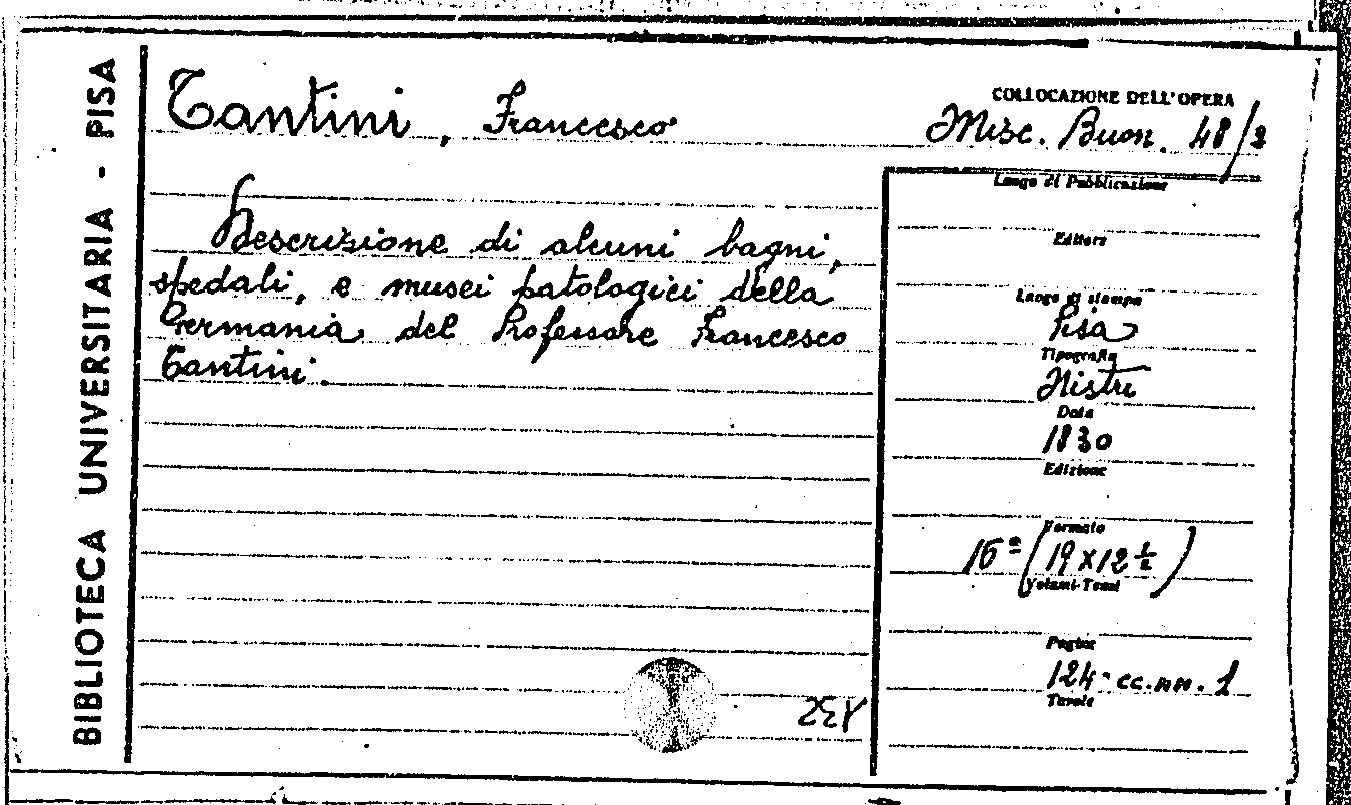 BIBLIOTECA UNIVERSITARIA - PISA
Tantini, Francesco
COLLOCAZIONE DELL'OPERA
Misc. Buon. 48/2
Descrizione di alcuni bagni,
spedali, e musei patologici della
Germania del Professore Francesco
Tantini.
Luogo di Pubblicazione
Editore
Luogo di stampa
Pisa
Tipografia
Nistri
Data
1830
Edizione
Formato
16º (19 x 12 ½)
Volumi-Tomi
Pagine
124. cc. nn. 1
Tavole